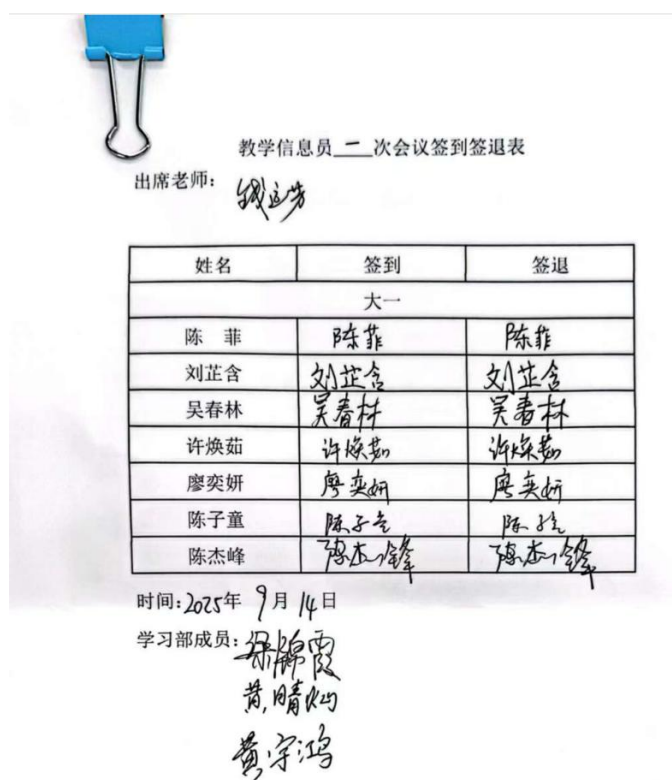 教学信息员一次会议签到签退表
出席老师：钱运芳
姓名 签到 签退
大一
陈 菲 陈菲 陈菲
刘芷含 刘芷含 刘芷含
吴春林 吴春林 吴春林
许焕茹 许焕茹 许焕茹
廖奕妍 廖奕妍 廖奕妍
陈子童 陈子童 陈子童
陈杰峰 陈杰锋 陈杰锋
时间：2025年 9月 14日
学习部成员：锦霞
黄晴灿
黄宇鸿